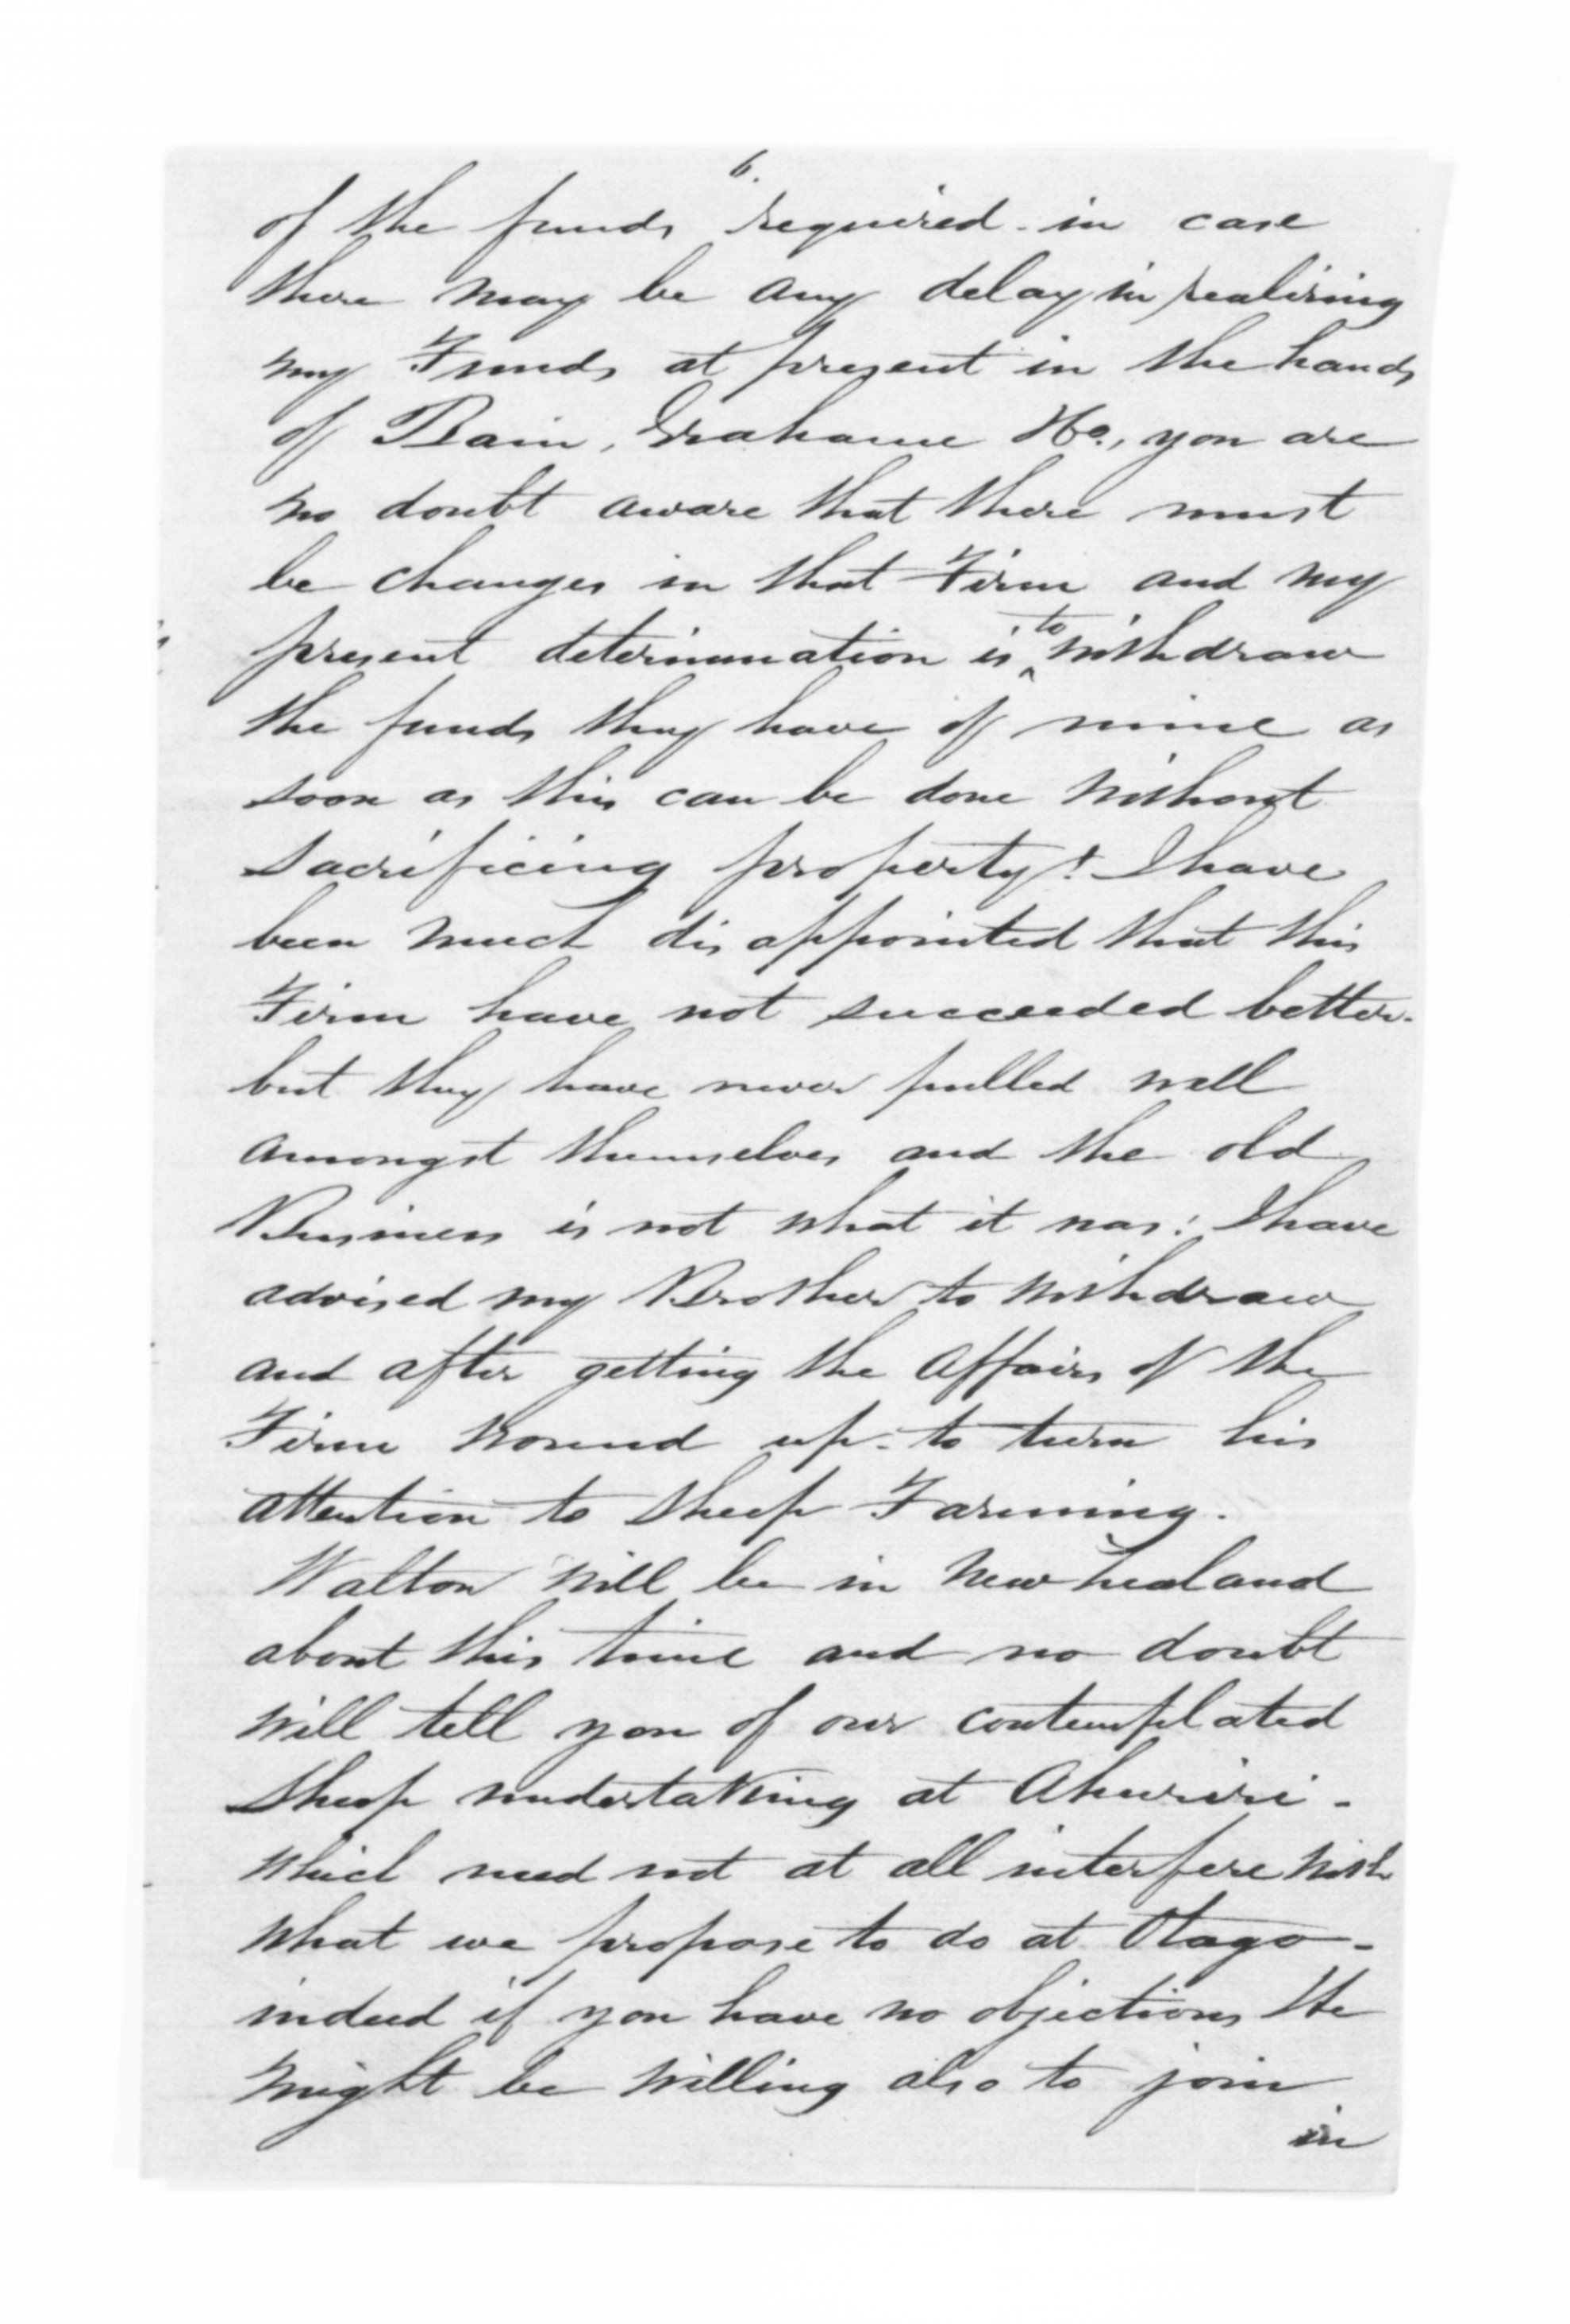 6.
of the funds required - in case
there may be any delay in realising
my Funds at present in the hands
of Bain, Grahame & Co., you are
no doubt aware that there must
be changes in that Firm and my
present determination is to withdraw
the funds they have of mine as
soon as this can be done without
sacrificing property! I have
been much disappointed that this
Firm have not succeeded better -
but they have never pulled well
amongst themselves and the old
Business is not what it was: I have
advised my Brother to withdraw
and after getting the affairs of the
Firm wound up - to turn his
attention to Sheep Farming.
Walton will be in New Zealand
about this time and no doubt
will tell you of our contemplated
Sheep undertaking at Ahuriri -
which need not at all interfere with
what we propose to do at Otago -
indeed if you have no objections He
might be willing also to join
in